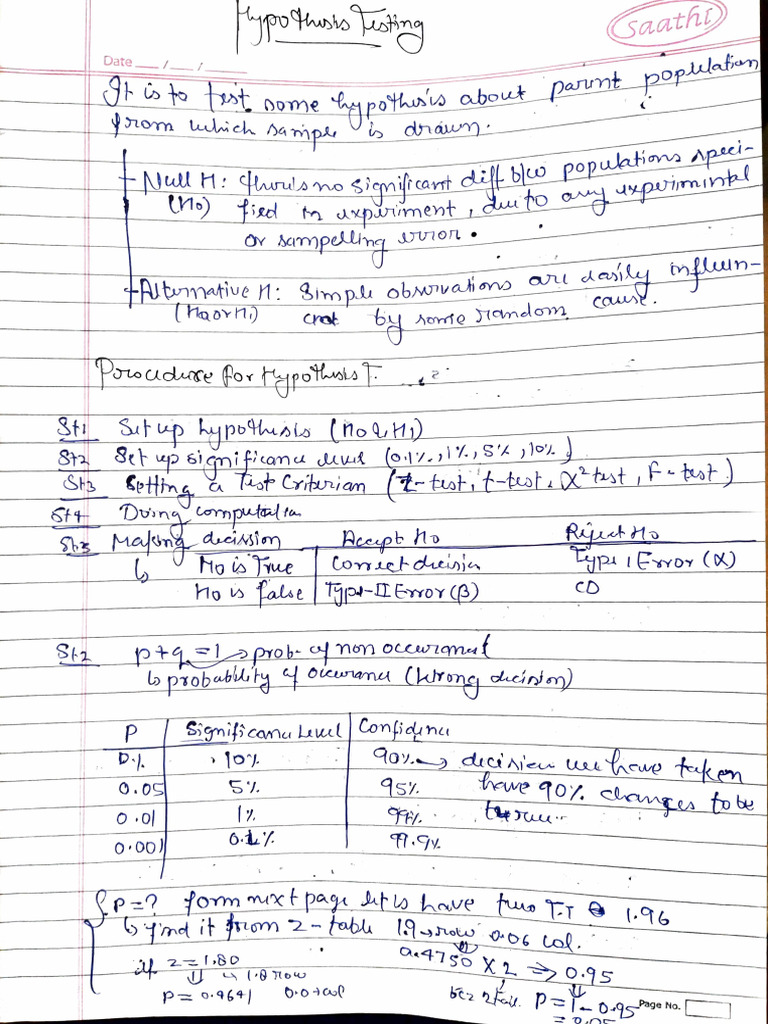 Hypothesis Testing
Saathi
Date __ / __ / ____
It is to test some hypothesis about parent population
from which sample is drawn.
Null H: there's no significant diff b/w populations speci-
(H0) fied in experiment, due to any experimental
or sampelling error.
Alternative H: Simple observations are easily influen-
(Ha or H1) by some random cause.
Procedure for Hypothesis T.
St1 Set up hypothesis (H0 & H1)
St2 Set up significance level (0.1%, 1%, 5%, 10%)
St3 Setting a Test Criterian (Z-test, t-test, X² test, F-test)
St4 Doing computation
St5 Making decission Accept H0 Reject H0
↳ H0 is True Correct decision Type I Error (α)
H0 is false Type-II Error (β) CD
St2 p+q=1 → prob. of non occurance
↳ probability of occurance (Wrong decision)
P Significance Level Confidence
0.1 10% 90% → decision we have taken
0.05 5% 95% have 90% changes to be
0.01 1% 99% true..
0.001 0.1% 99.9%
{ P=? form next page let is have two T.T 1.96
↳ find it from Z-table 1.9→row 0.06 col.
if z=1.80 0.4750 X 2 ⇒ 0.95
⇓ ↳ 1.8 row
P = 0.4641 0.0→col bcz 2 tail. P=1-0.95
= 0.05
Page No.